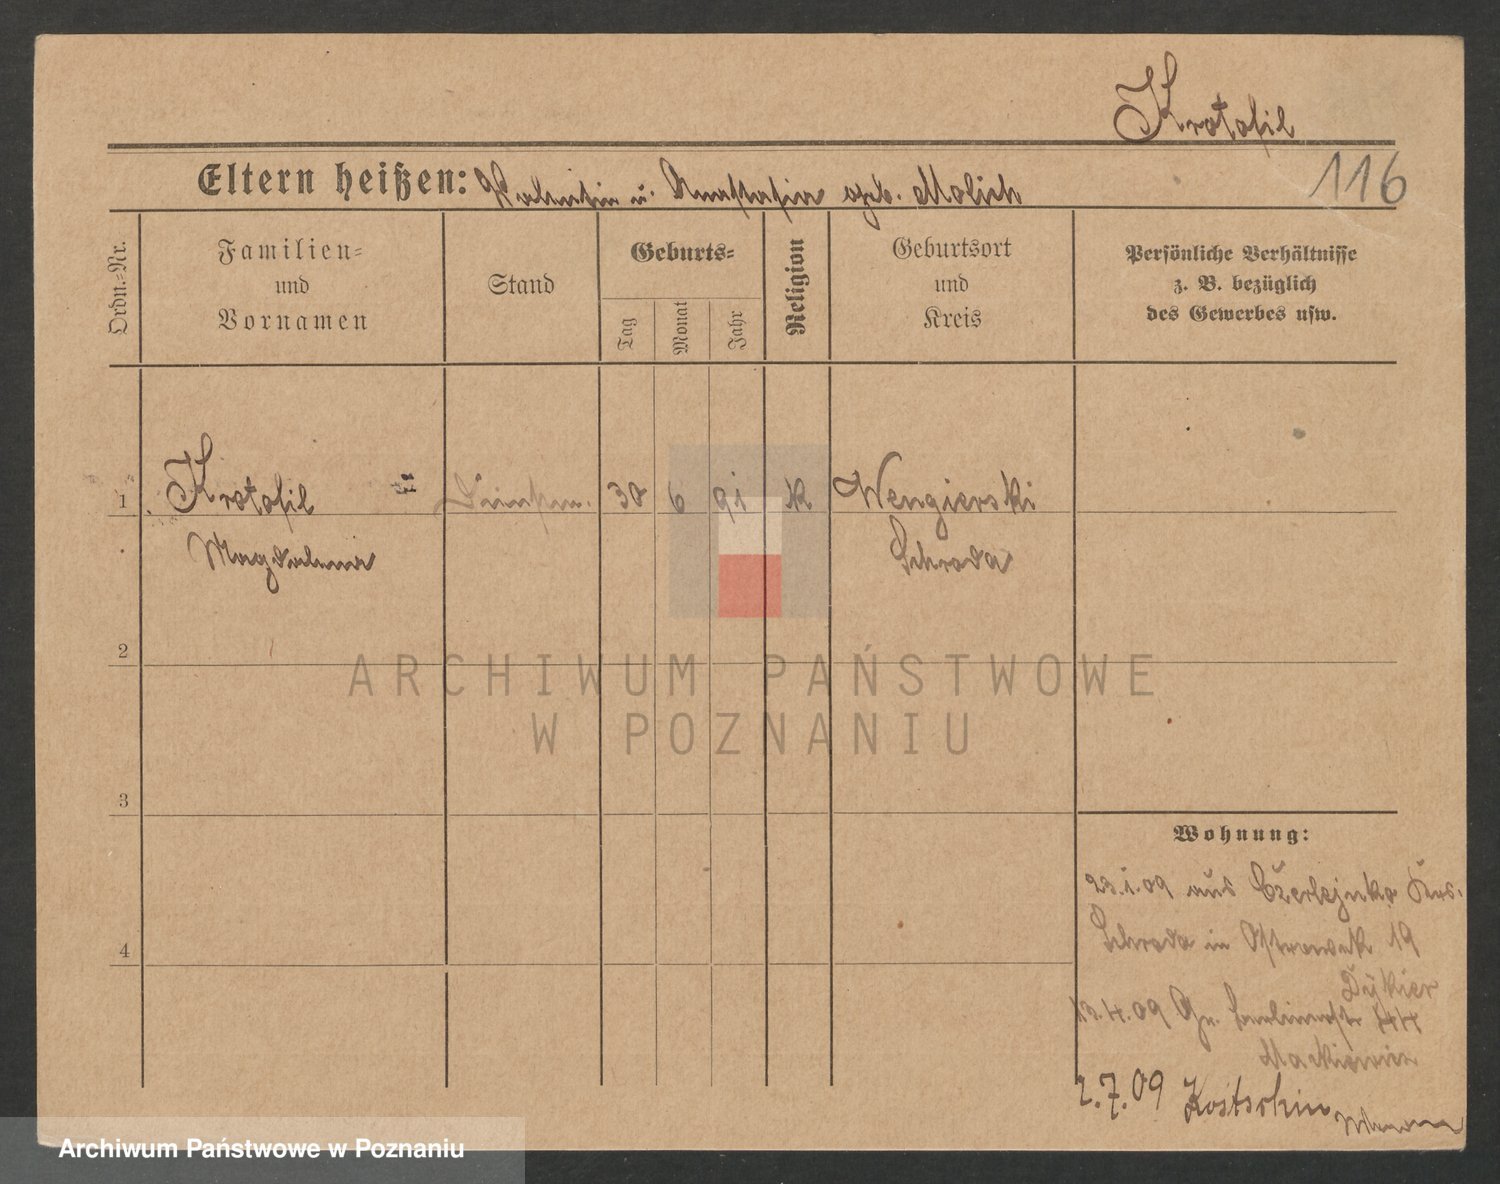 Krotofil
Eltern heißen: Valentin u. Anastasia geb. Molick
116
Ordn.-Nr.
Familien-
und
Vornamen
Stand
Geburts-
Tag
Monat
Jahr
Religion
Geburtsort
und
Kreis
Persönliche Verhältnisse
z. B. bezüglich
des Gewerbes usw.
1 Krotofil 30 6 91 k Wengierski
Magdalena Schroda
2
3
4
Wohnung:
23.1.09 aus Czerlejnko Krs.
Schroda in Ostrowek 19
13.4.09 Gr. 44
2.7.09 Kostschin
ARCHIWUM PAŃSTWOWE
W POZNANIU
Archiwum Państwowe w Poznaniu